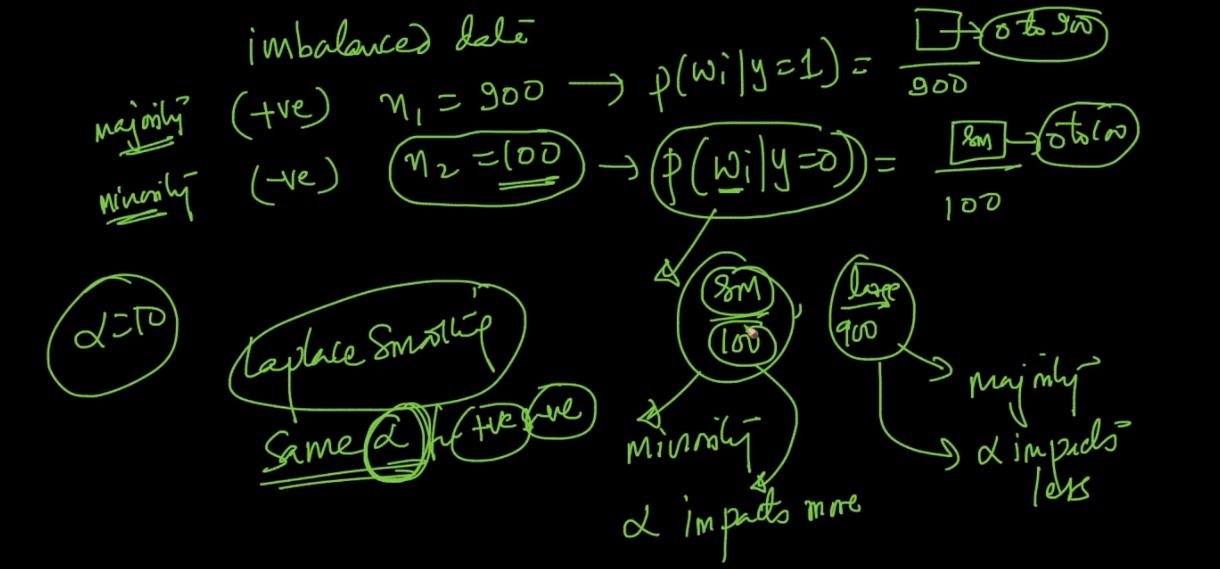 imbalanced data
majority (+ve) n₁ = 900 → p(wi|y=1) = □/900 → 0 to 900
minority (-ve) n₂ = 100 → p(wi|y=0) = SM/100 → 0 to 100
α=10
Laplace Smoothing
same α for +ve & -ve
SM/100
large/900
minority
α impacts more
majority
α impacts less